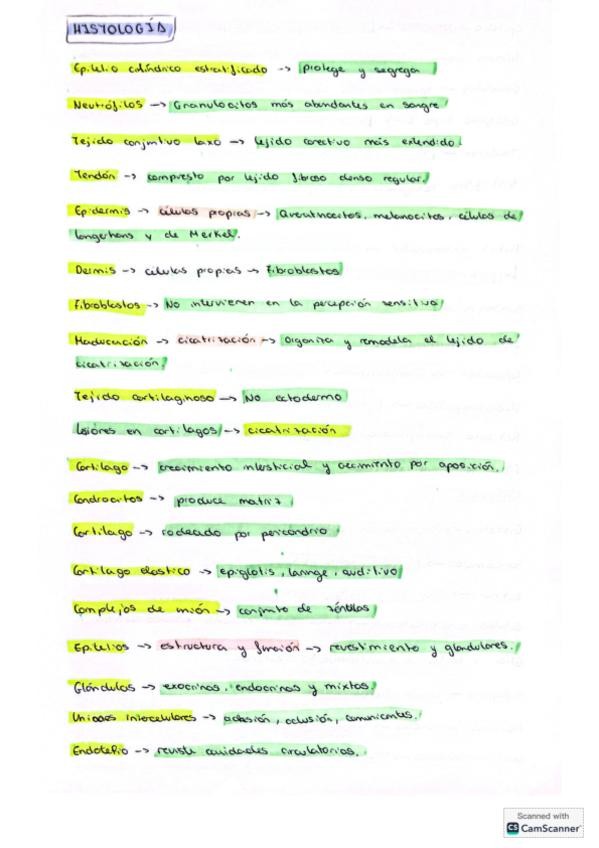 HISTOLOGÍA
Epitelio cilíndrico estratificado -> protege y segrega
Neutrófilos -> Granulocitos más abundantes en sangre
Tejido conjuntivo laxo -> tejido conectivo más extendido.
Tendón -> compuesto por tejido fibroso denso regular.
Epidermis -> células propias -> Queratinocitos, melanocitos, células de
langerhans y de Merkel.
Dermis -> células propias -> Fibroblastos
Fibroblastos -> No intervienen en la percepción sensitiva
Maduración -> cicatrización -> Organiza y remodela el tejido de
cicatrización.
Tejido cartilaginoso -> No ectodermo
Lesiones en cartílagos -> cicatrización
Cartílago -> crecimiento intersticial y crecimiento por aposición.
Condrocitos -> produce matriz
Cartílago -> rodeado por pericondrio
Cartílago elástico -> epiglotis, laringe, auditivo
Complejos de unión -> conjunto de
Epitelios -> estructura y función -> revestimiento y glandulares.
Glándulas -> exocrinas, endocrinas y mixtas.
Uniones intercelulares -> adhesión, oclusión, comunicantes.
Endotelio -> reviste cavidades circulatorias.
Scanned with
CS CamScanner